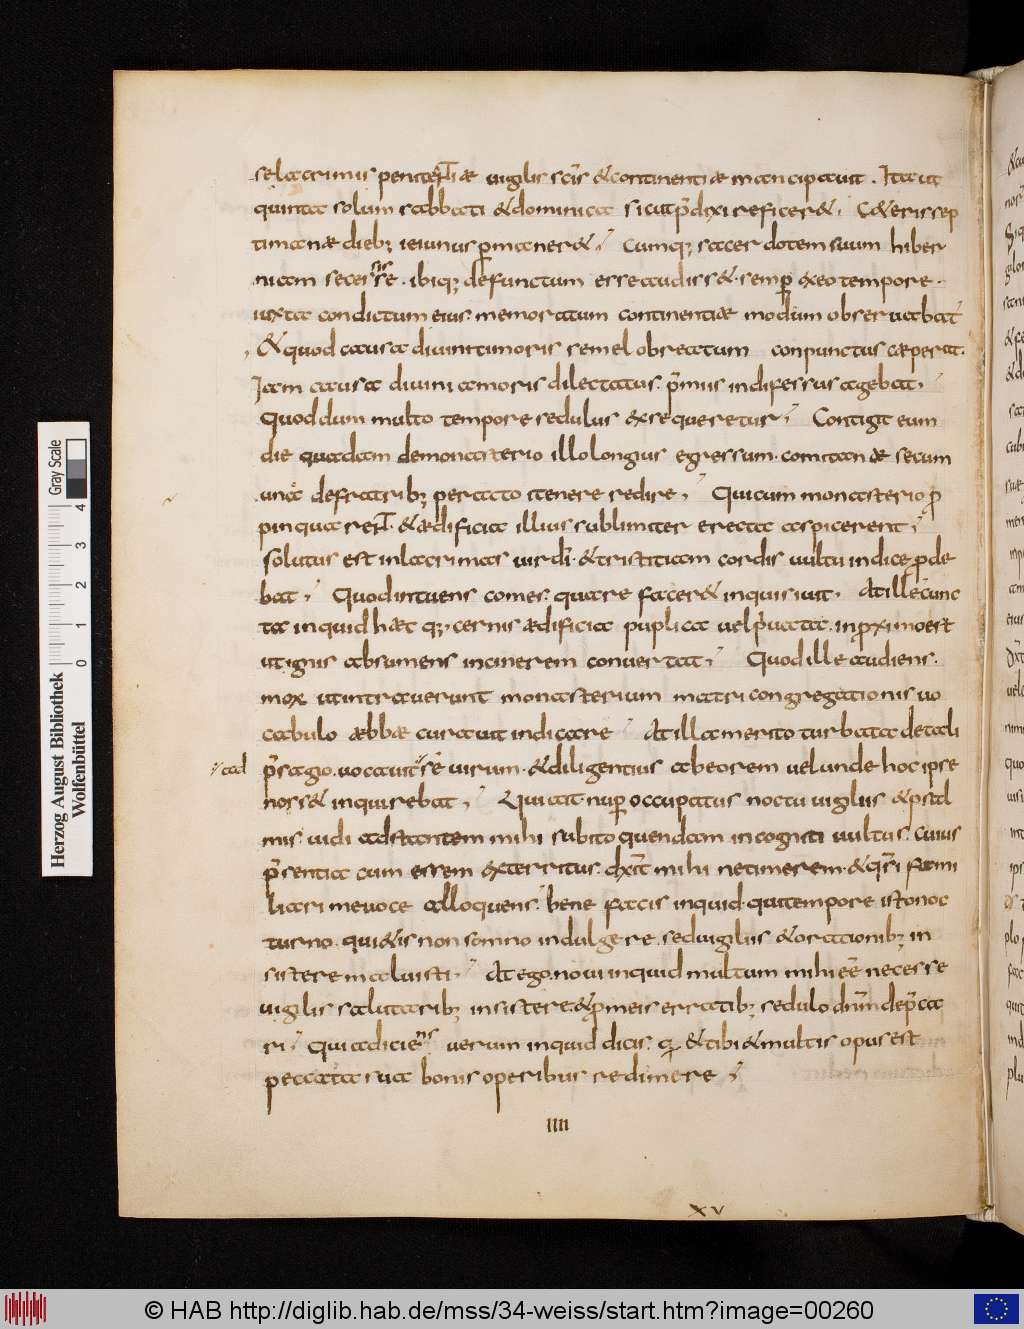 se lacrimis penitentiae uigiliis scīs & continentiae mancipauit. Ita ut
quinta solum sabbati & dominica sicut p̄dixi reficer&. C&eris sep
timanae dieb; ieiunus ꝑmaner&. Cumq; sacerdotem suum hiber
niam secessisse. ibiq; defunctum esse audiss&. semꝑ ex eo tempore.
iuxta condictum eius memoratum continentiae modum obseruabat
& quod causa diuini timoris semel ob reatum conpunctus caeperat.
Iam causa diuini amoris dilectatus. p̄miis indifessus agebat,
Quod dum multo tempore sedulus exsequeretur. Contigit eum
die quadam de monasterio illo longius egressum. comitante secum
una de fratrib; peracto itenere redire, Qui cum monasterio ꝓ
pinquarent. & aedificia illius sublimiter erecta aspicerent,
solutus est in lacrimas uir dī. & tristitiam cordis uultu indice ꝓde
bat, Quod intuens comes. quare facer& inquisiuit. At ille cunc
ta inquid haec q; cernis aedificia puplica uel p̄uata. in ꝓximo est
ut ignis absumens in cinerem conuertat, Quod ille audiens.
mox ut intrauerunt monasterium matri congregationis uo
cabulo aebbae curauit indicare. At illa merito turbata de tali
ad
p̄sagio. uocauit se uirum. & diligentius ab eo rem uel unde hoc ipse
noss& inquirebat, Qui ait. nuꝑ occupatus noctu uigiliis & psal
mis. uidi adstantem mihi subito quendam incogniti uultus. cuius
p̄sentia cum essem exterritus. dixīt mihi ne timerem. & q̄si fami
liari me uoce alloquens. bene facis inquid. qui tempore isto noc
turno. qui&is non somno indulgere. sed uigiliis & orationib; in
sistere maluisti. At ego. noui inquid multum mihi eē necesse
uigiliis salutarib; insistere. & ꝓ meis erratib; sedulo dn̄m dep̄ca
ri. Qui adiciens uerum inquid dicis. q & tibi & multis opus est
peccata sua bonis operibus redimere,
IIII
XV
Herzog August Bibliothek
Wolfenbüttel
Gray Scale
0 1 2 3 4
© HAB http://diglib.hab.de/mss/34-weiss/start.htm?image=00260